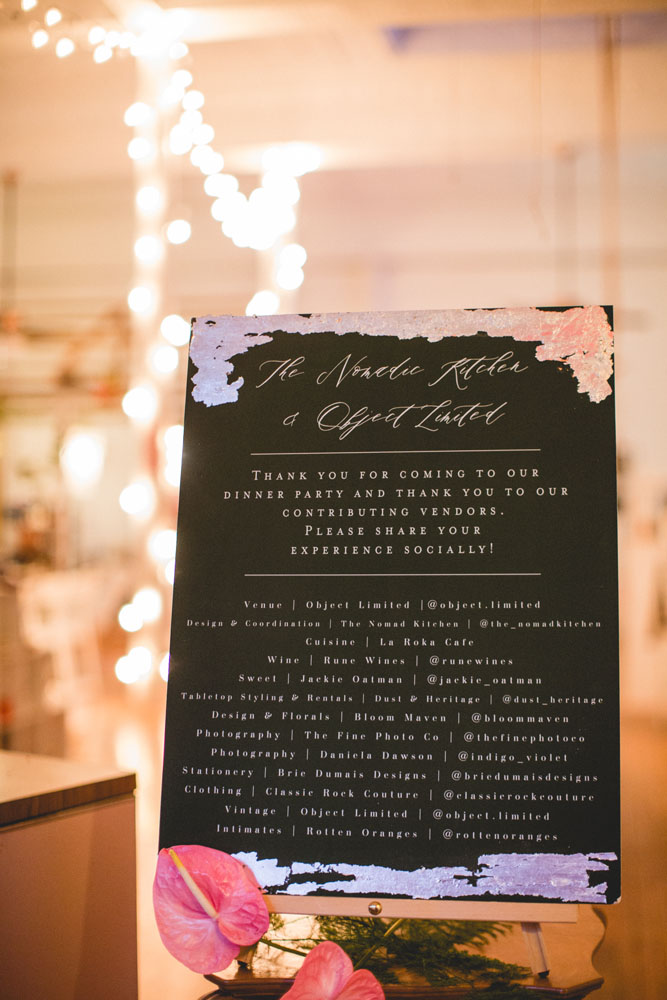 The Nomadic Kitchen
& Object Limited
Thank you for coming to our
dinner party and thank you to our
contributing vendors.
Please share your
experience socially!
Venue | Object Limited |@object.limited
Design & Coordination | The Nomad Kitchen | @the_nomadkitchen
Cuisine | La Roka Cafe
Wine | Rune Wines | @runewines
Sweet | Jackie Oatman | @jackie_oatman
Tabletop Styling & Rentals | Dust & Heritage | @dust_heritage
Design & Florals | Bloom Maven | @bloommaven
Photography | The Fine Photo Co | @thefinephotoco
Photography | Daniela Dawson | @indigo_violet
Stationery | Brie Dumais Designs | @briedumaisdesigns
Clothing | Classic Rock Couture | @classicrockcouture
Vintage | Object Limited | @object.limited
Intimates | Rotten Oranges | @rottenoranges